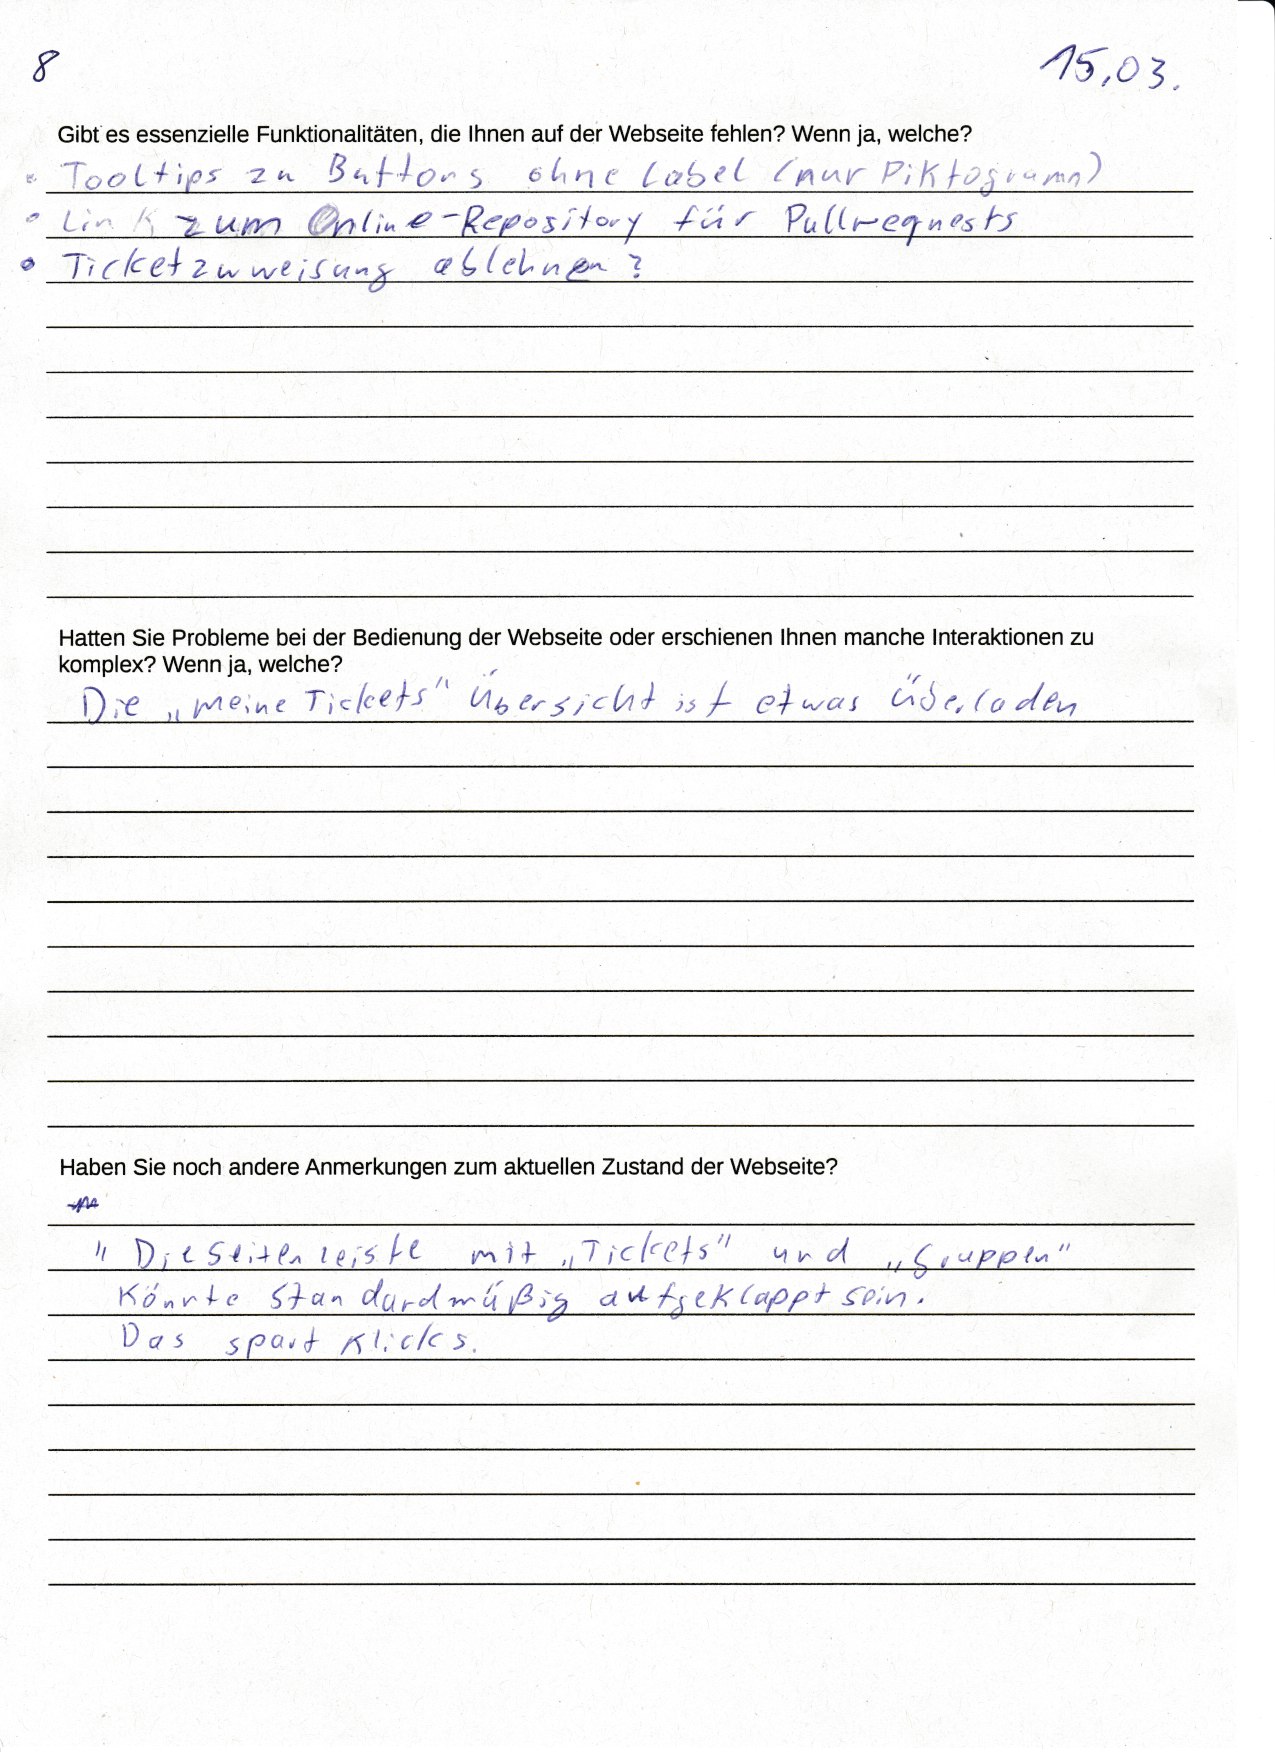 8
15.03.
Gibt es essenzielle Funktionalitäten, die Ihnen auf der Webseite fehlen? Wenn ja, welche?
• Tooltips zu Buttons ohne Label (nur Piktogramm)
• Link zum Online-Repository für Pullrequests
• Ticketzuweisung ablehnen?
Hatten Sie Probleme bei der Bedienung der Webseite oder erschienen Ihnen manche Interaktionen zu
komplex? Wenn ja, welche?
Die „meine Tickets" Übersicht ist etwas überladen
Haben Sie noch andere Anmerkungen zum aktuellen Zustand der Webseite?
" Die Seitenleiste mit „Tickets" und „Gruppen"
Könnte Standardmäßig aufgeklappt sein.
Das spart Klicks.